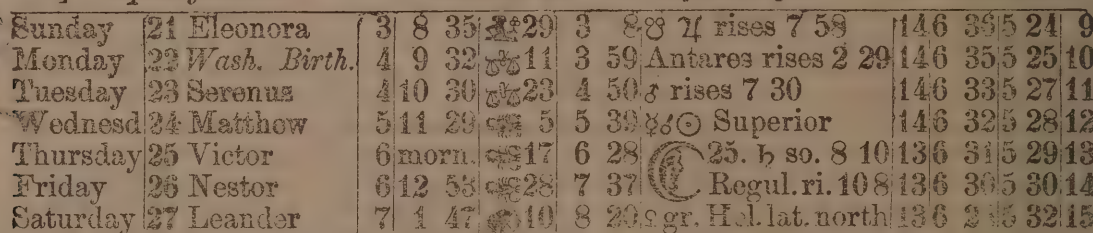 Sunday 21 Eleonora 3 8 35 29 3 8 ☍ ♃ rises 7 58 14 6 36 5 24 9
Monday 22 Wash. Birth. 4 9 32 ♎ 11 3 59 Antares rises 2 29 14 6 35 5 25 10
Tuesday 23 Serenus 4 10 30 ♎ 23 4 50 ♂ rises 7 30 14 6 33 5 27 11
Wednesd 24 Matthow 5 11 29 5 5 39 ☿☌☉ Superior 14 6 32 5 28 12
Thursday 25 Victor 6 morn. 17 6 28 25. ♄ so. 8 10 13 6 31 5 29 13
Friday 26 Nestor 6 12 53 28 7 37 Regul. ri. 10 8 13 6 30 5 30 14
Saturday 27 Leander 7 1 47 10 8 20 ♀ gr. Hel. lat. north 13 6 5 32 15